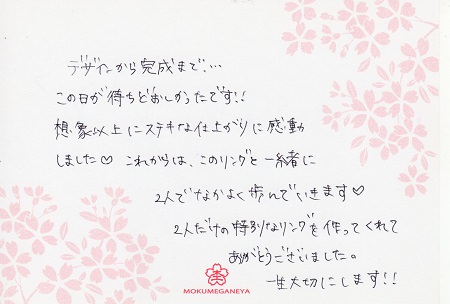 デザインから完成まで…
この日が待ちどおしかったです!!
想象以上にステキな仕上がりに感動
しました♡ これからは、このリングと一緒に
2人でなかよく歩んでいきます♡
2人だけの特別なリングを作ってくれて
ありがとうございました。
一生大切にします!!
MOKUMEGANEYA